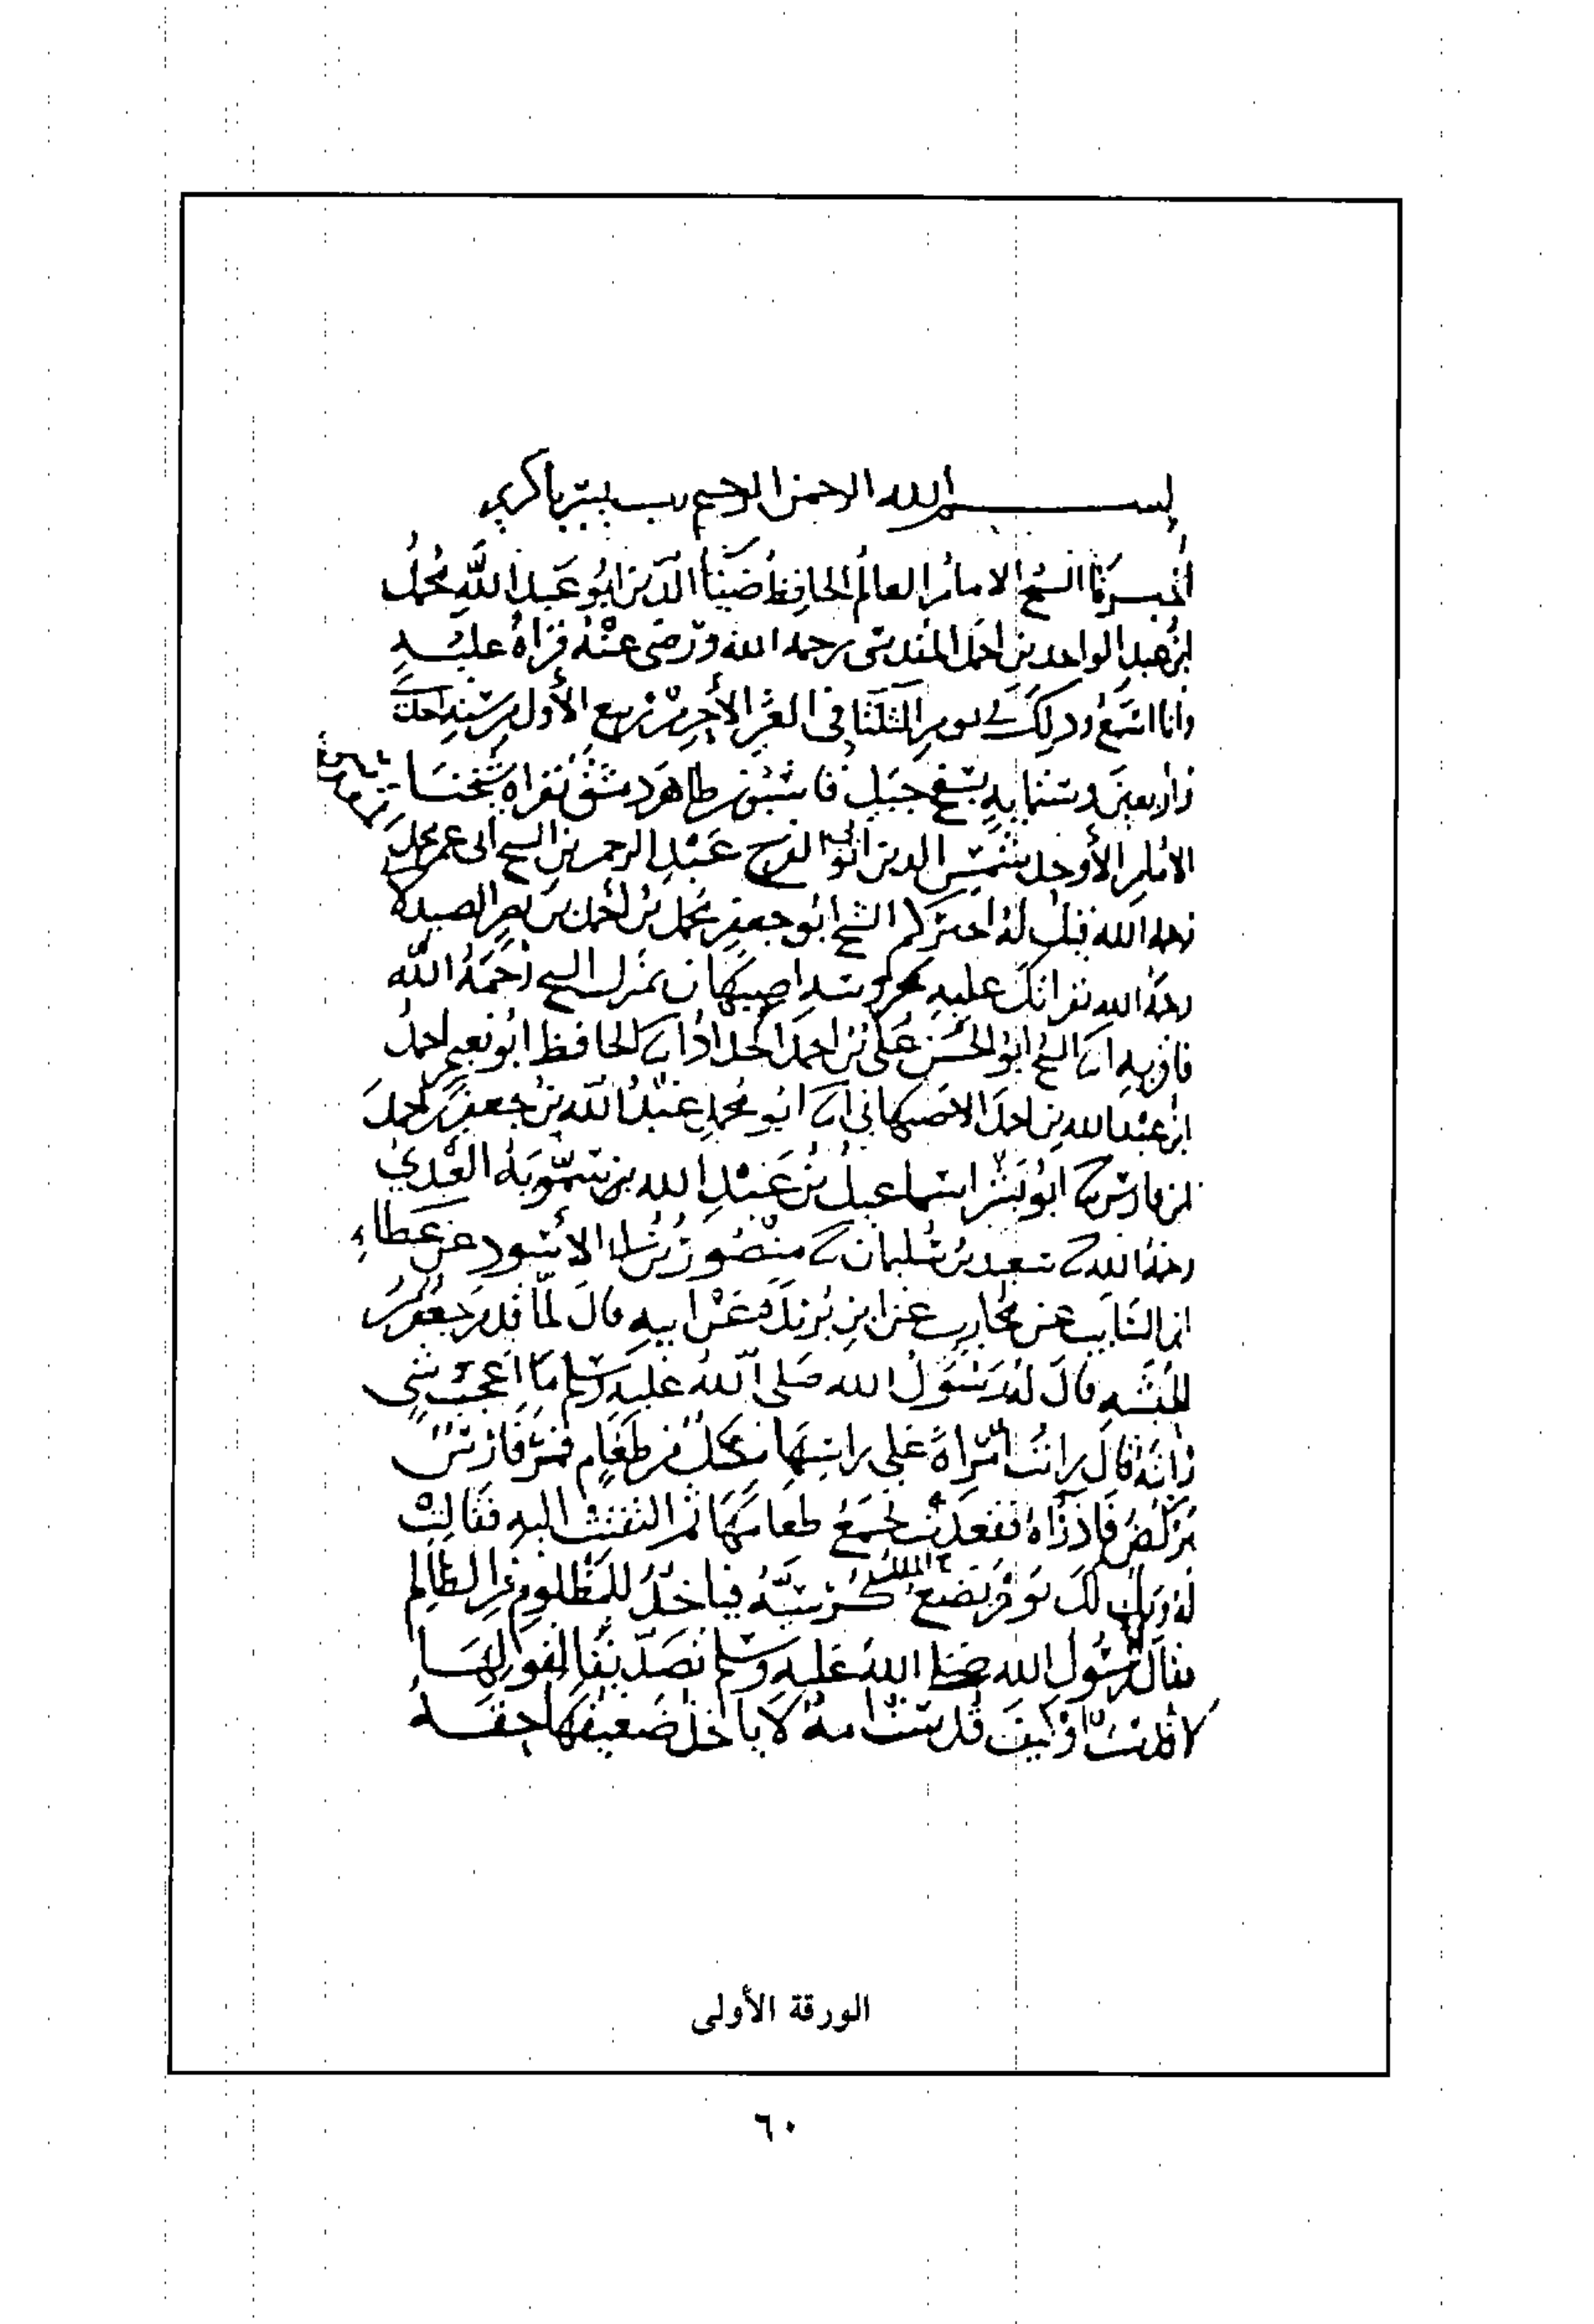 بسم الله الرحمن الرحيم رب يسر يا كريم
أخبرنا الشيخ الامام العالم الحافظ ضيا الدين ابو عبد الله محمد
ابن عبد الواحد بن احمد المقدسي رحمه الله ورضي عنه قراة عليه
وانا اسمع وذلك في يوم الثلثا في العشر الأخر من ربيع الأول من سنة احدى
واربعين وستماية بسفح جبل قاسيون ظاهر دمشق بقراة شيخنا
الامام الأوحد شمس الدين ابي الفرج عبد الرحمن بن الشيخ ابي عمر محمد
رحمه الله قيل له اخبركم الشيخ ابو جعفر محمد بن احمد بن نصر الصيدلا
رحمة الله بقراتك عليه بمحروسة اصبهان بمنزل الشيخ رحمة الله
فاقر به انا الشيخ ابو الحسن علي بن احمد الحداد انا الحافظ ابو نعيم احمد
ابن عبد الله بن احمد الاصبهاني انا ابو محمد عبد الله بن جعفر بن احمد
بن فارس ثنا ابو بشر اسماعيل بن عبد الله بن سمويه العبدي
رحمة الله ثنا سعيد بن سليمان ثنا منصور بن ابي الأسود عن عطاء
ابن السايب عن محارب عن ابن بريدة عن ابيه قال لما قدم جعفر من
الحبشه قال له رسول الله صلى الله عليه وسلم ما اعجب شي
رايته قال رايت امراة على راسها مكتل من طعام فمر فارس
يركض فاذراه فقعدت تجمع طعامها ثم التفتت اليه فقالت
له ويل لك يوم يضع الملك كرسيه فياخذ للمظلوم من الظالم
فقال رسول الله صلى الله عليه وسلم تصديقا لقولها
لا قدست او كيف قدست امة لا ياخذ ضعيفها حقه
الورقة الأولى
٦٠